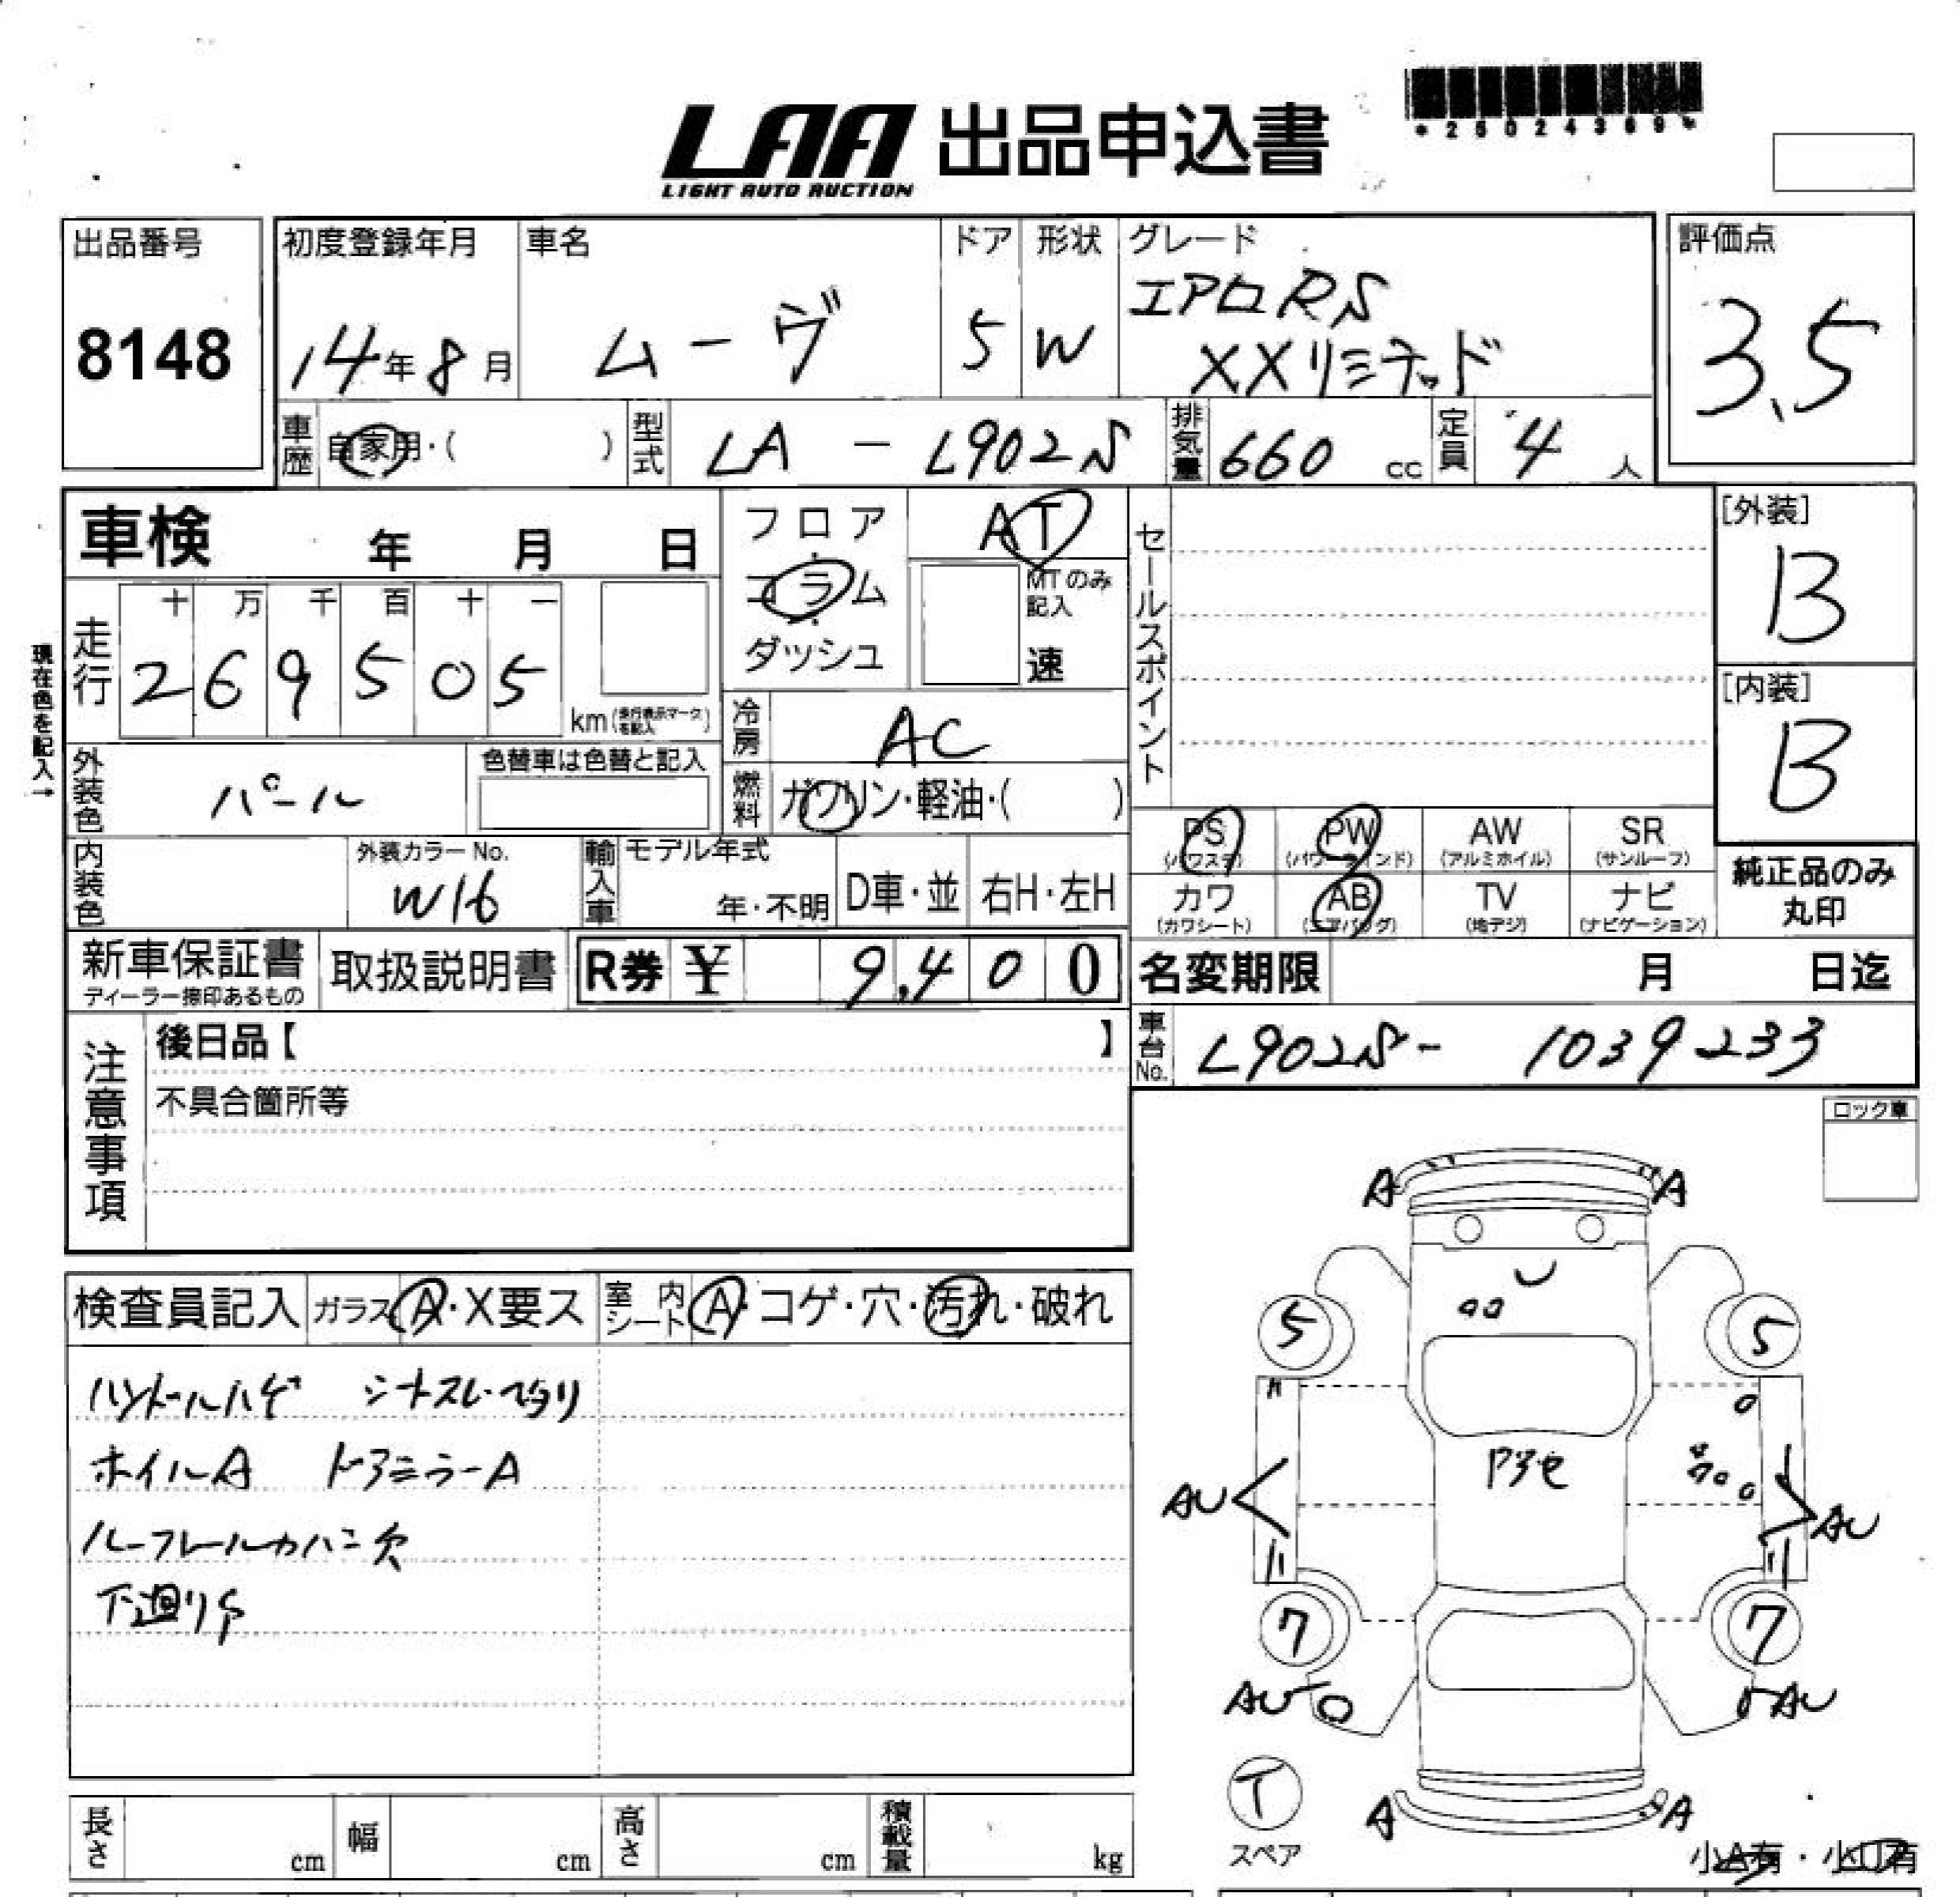 LAA 出品申込書
LIGHT AUTO AUCTION
*25024369*
出品番号
8148
初度登録年月
14年8月
車名
ムーヴ
ドア
5
形状
W
グレード
エアロRS
XXリミテッド
評価点
3.5
車歴
自家用・( )
型式
LA - L902S
排気量
660 cc
定員
4 人
車検 年 月 日
フロア
コラム
ダッシュ
AT
MTのみ記入
速
セールスポイント
[外装]
B
[内装]
B
現在色を記入→
走行
十 万 千 百 十 一
2 6 9 5 0 5
km(走行表示マークを記入)
冷房
AC
外装色
パール
色替車は色替と記入
燃料
ガソリン・軽油・( )
PS
(パワステ)
PW
(パワーウィンド)
AW
(アルミホイル)
SR
(サンルーフ)
内装色
外装カラーNo.
W16
輸入車
モデル年式
年・不明
D車・並
右H・左H
カワ
(カワシート)
AB
(エアバッグ)
TV
(地デジ)
ナビ
(ナビゲーション)
純正品のみ
丸印
新車保証書
ディーラー捺印あるもの
取扱説明書
R券 ¥ 9,400
名変期限 月 日迄
車台No.
L902S- 1039233
注意事項
後日品【 】
不具合箇所等
ロック車
検査員記入
ガラス A・X要ス
室内シート A・コゲ・穴・汚れ・破れ
ハンドルハゲ
ホイルA ドアミラーA
ルーフレールカバー欠
下廻りS
A A
5 5
AU AU
7 7
AU AU
T
スペア
A A
小A有・小U有
長さ cm
幅 cm
高さ cm
積載量 kg